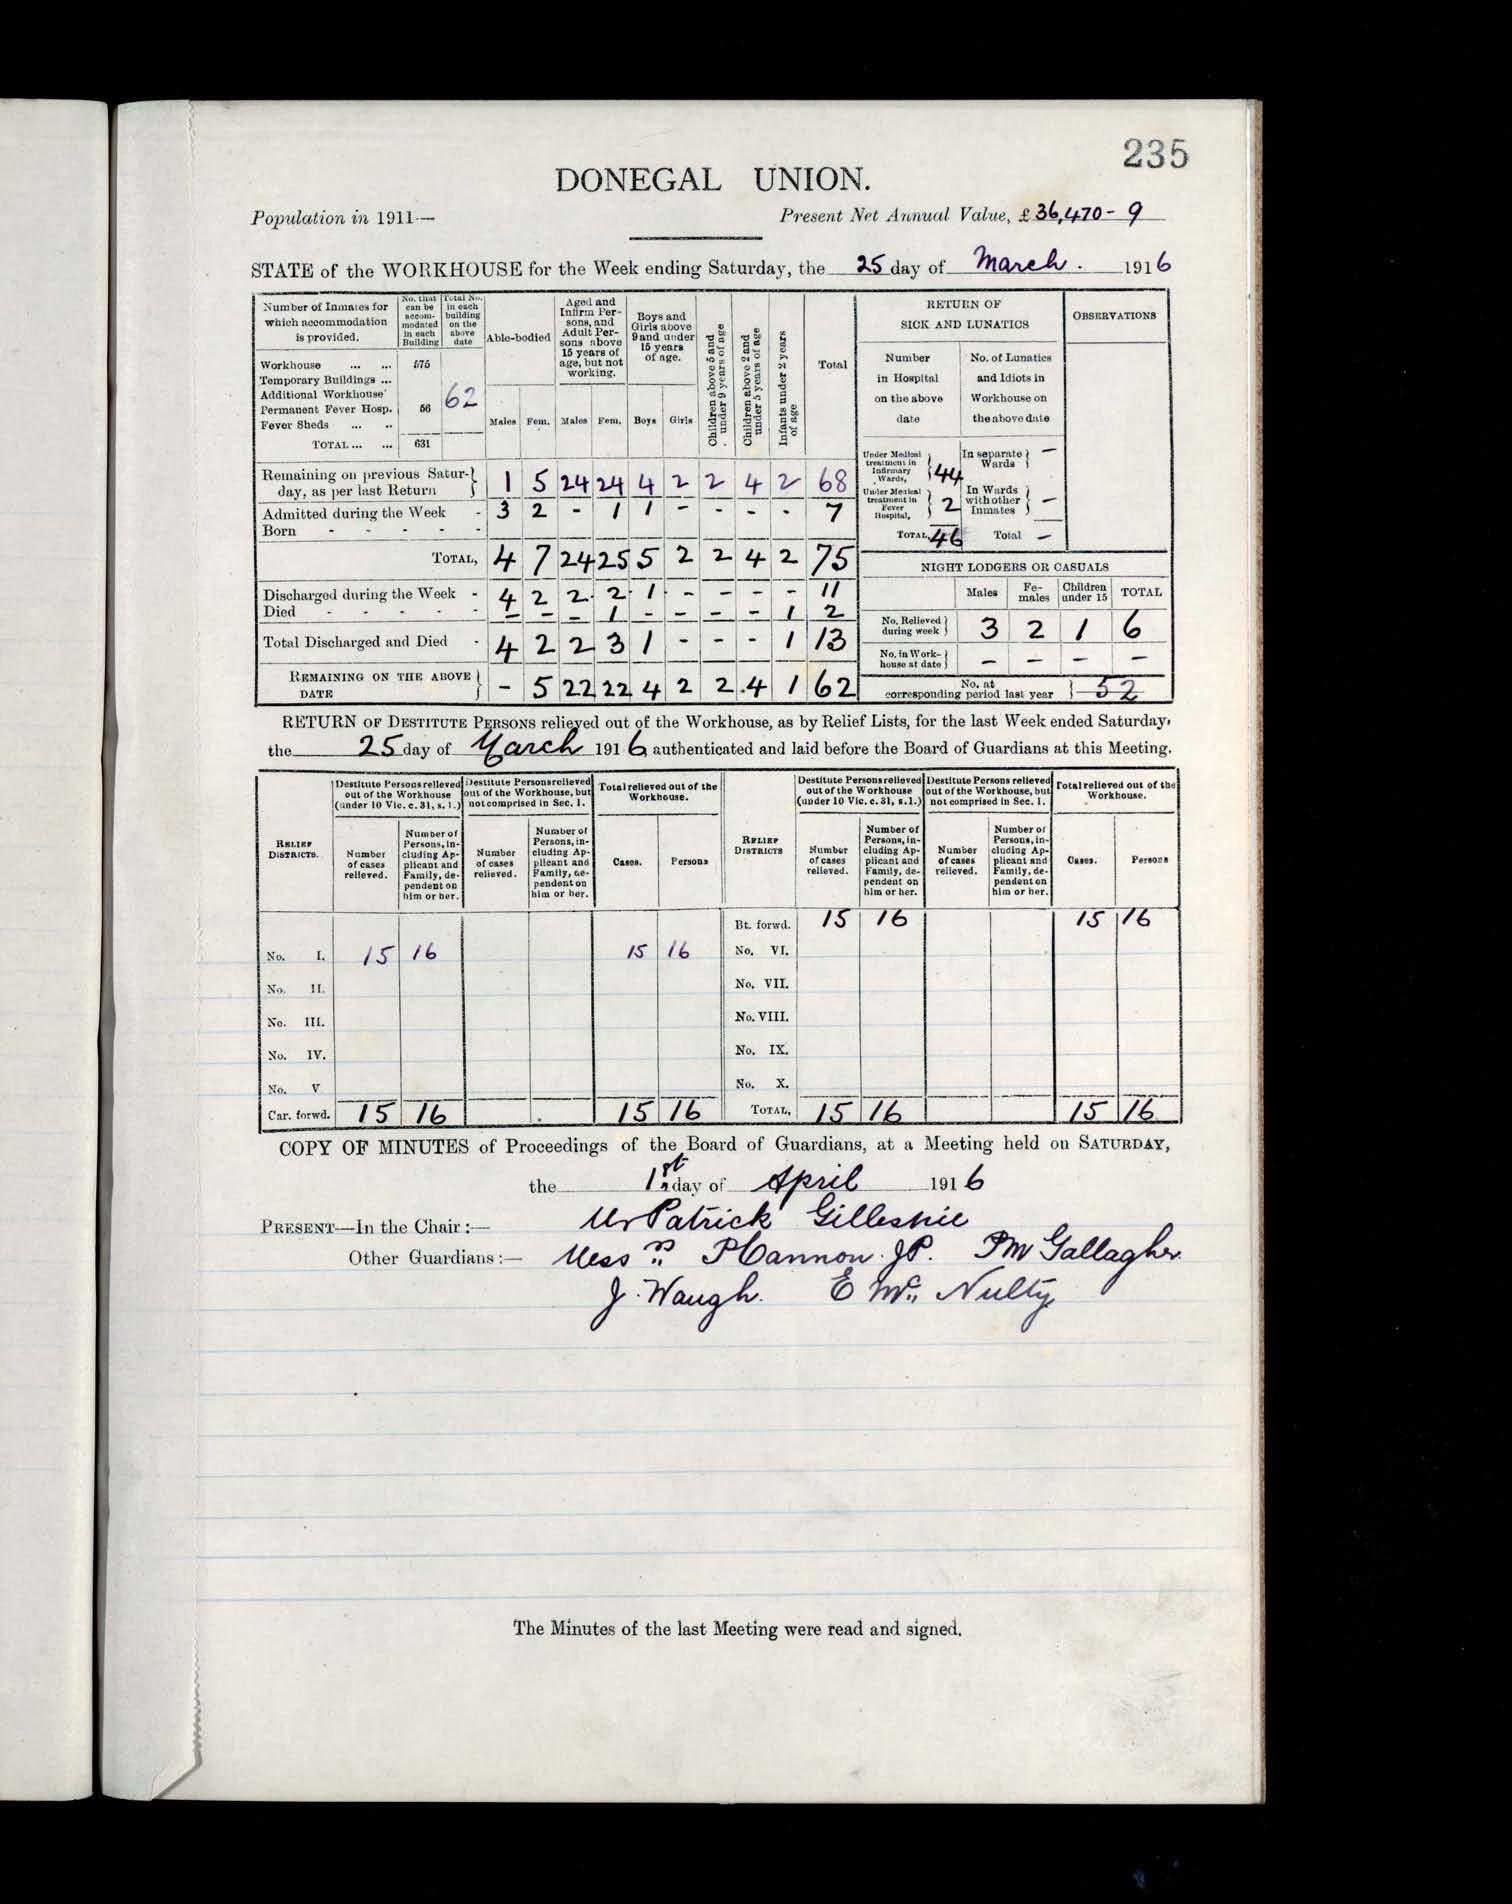 235
DONEGAL UNION.
Population in 1911— Present Net Annual Value, £36,470 - 9
STATE of the WORKHOUSE for the Week ending Saturday, the 25 day of March. 1916
Number of Inmates for which accommodation is provided.
No. that can be accommodated in each Building
Total No. in each building on the above date
Able-bodied
Aged and Infirm Persons, and Adult Persons above 15 years of age, but not working.
Boys and Girls above 9 and under 15 years of age.
Children above 5 and under 9 years of age
Children above 2 and under 5 years of age
Infants under 2 years of age
Total
Males Fem. Males Fem. Boys Girls
Workhouse ... ... 575
Temporary Buildings ...
Additional Workhouse
Permanent Fever Hosp. 56
Fever Sheds ... ..
TOTAL ... ... 631
62
Remaining on previous Saturday, as per last Return } 1 5 24 24 4 2 2 4 2 68
Admitted during the Week - 3 2 - 1 1 - - - - 7
Born - - - - -
TOTAL, 4 7 24 25 5 2 2 4 2 75
Discharged during the Week - 4 2 2 2 1 - - - - 11
Died - - - - - - - - 1 - - - - 1 2
Total Discharged and Died - 4 2 2 3 1 - - - 1 13
REMAINING ON THE ABOVE DATE } - 5 22 22 4 2 2 4 1 62
RETURN OF SICK AND LUNATICS
OBSERVATIONS
Number in Hospital on the above date
No. of Lunatics and Idiots in Workhouse on the above date
Under Medical treatment in Infirmary Wards, } 44
In separate Wards } —
Under Medical treatment in Fever Hospital, } 2
In Wards with other Inmates } —
TOTAL, 46 Total —
NIGHT LODGERS OR CASUALS
Males Females Children under 15 TOTAL
No. Relieved during week } 3 2 1 6
No. in Workhouse at date } — — — —
No. at corresponding period last year } 52
RETURN OF DESTITUTE PERSONS relieved out of the Workhouse, as by Relief Lists, for the last Week ended Saturday,
the 25 day of March 1916, authenticated and laid before the Board of Guardians at this Meeting.
RELIEF DISTRICTS.
Destitute Persons relieved out of the Workhouse (under 10 Vic. c. 31, s. 1.)
Destitute Persons relieved out of the Workhouse, but not comprised in Sec. 1.
Total relieved out of the Workhouse.
Number of cases relieved.
Number of Persons, including Applicant and Family, dependent on him or her.
Number of cases relieved.
Number of Persons, including Applicant and Family, dependent on him or her.
Cases. Persons
RELIEF DISTRICTS
Destitute Persons relieved out of the Workhouse (under 10 Vic. c. 31, s.1.)
Destitute Persons relieved out of the Workhouse, but not comprised in Sec. 1.
Total relieved out of the Workhouse.
Number of cases relieved.
Number of Persons, including Applicant and Family, dependent on him or her.
Number of cases relieved.
Number of Persons, including Applicant and Family, dependent on him or her.
Cases. Persons
Bt. forwd. 15 16 15 16
No. I. 15 16 15 16 No. VI.
No. II. No. VII.
No. III. No. VIII.
No. IV. No. IX.
No. V No. X.
Car. forwd. 15 16 15 16 TOTAL, 15 16 15 16
COPY OF MINUTES of Proceedings of the Board of Guardians, at a Meeting held on SATURDAY,
the 1st day of April 1916
PRESENT—In the Chair :— Mr Patrick Gillespie
Other Guardians :— Messrs P Cannon JP. PM Gallagher
J. Waugh. E Mc Nulty
The Minutes of the last Meeting were read and signed.